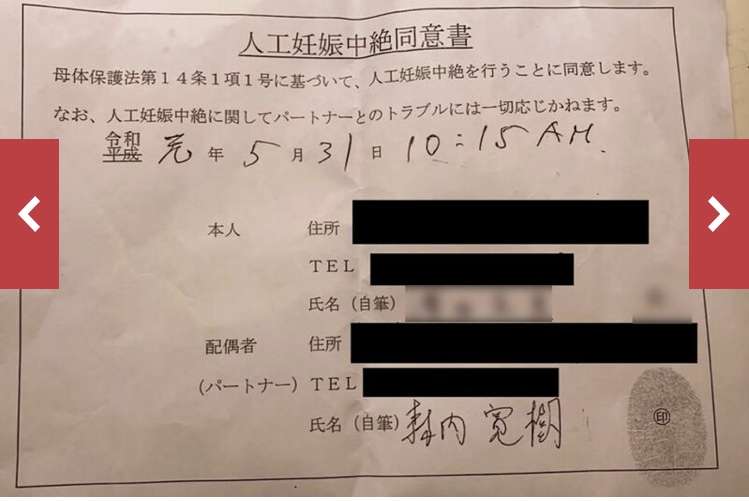 人工妊娠中絶同意書
母体保護法第14条1項1号に基づいて、人工妊娠中絶を行うことに同意します。
なお、人工妊娠中絶に関してパートナーとのトラブルには一切応じかねます。
令和
平成 元 年 5 月 31 日 10:15 AM.
本人 住所
TEL
氏名（自筆）
配偶者 住所
（パートナー） TEL
氏名（自筆） 森内 寛樹 印